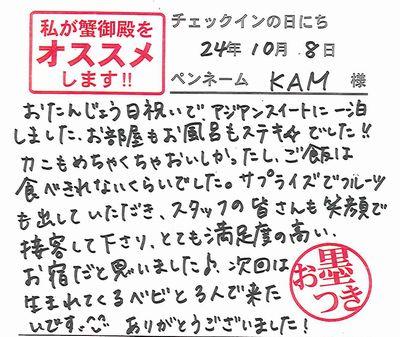 私が蟹御殿を
オススメ
します!!
チェックインの日にち
24年10月8日
ペンネーム KAM 様
おたんじょう日祝いで、アジアンスイートに一泊
しました、お部屋もお風呂もステキでした!!
カニもめちゃくちゃおいしかったし、ご飯は
食べきれないくらいでした。サプライズでフルーツ
も出していただき、スタッフの皆さんも笑顔で
接客して下さり、とても満足度の高い、
お宿だと思いました♪、次回は
生まれてくるベビと3人で来た
いです。^^ ありがとうございました!
お墨つき